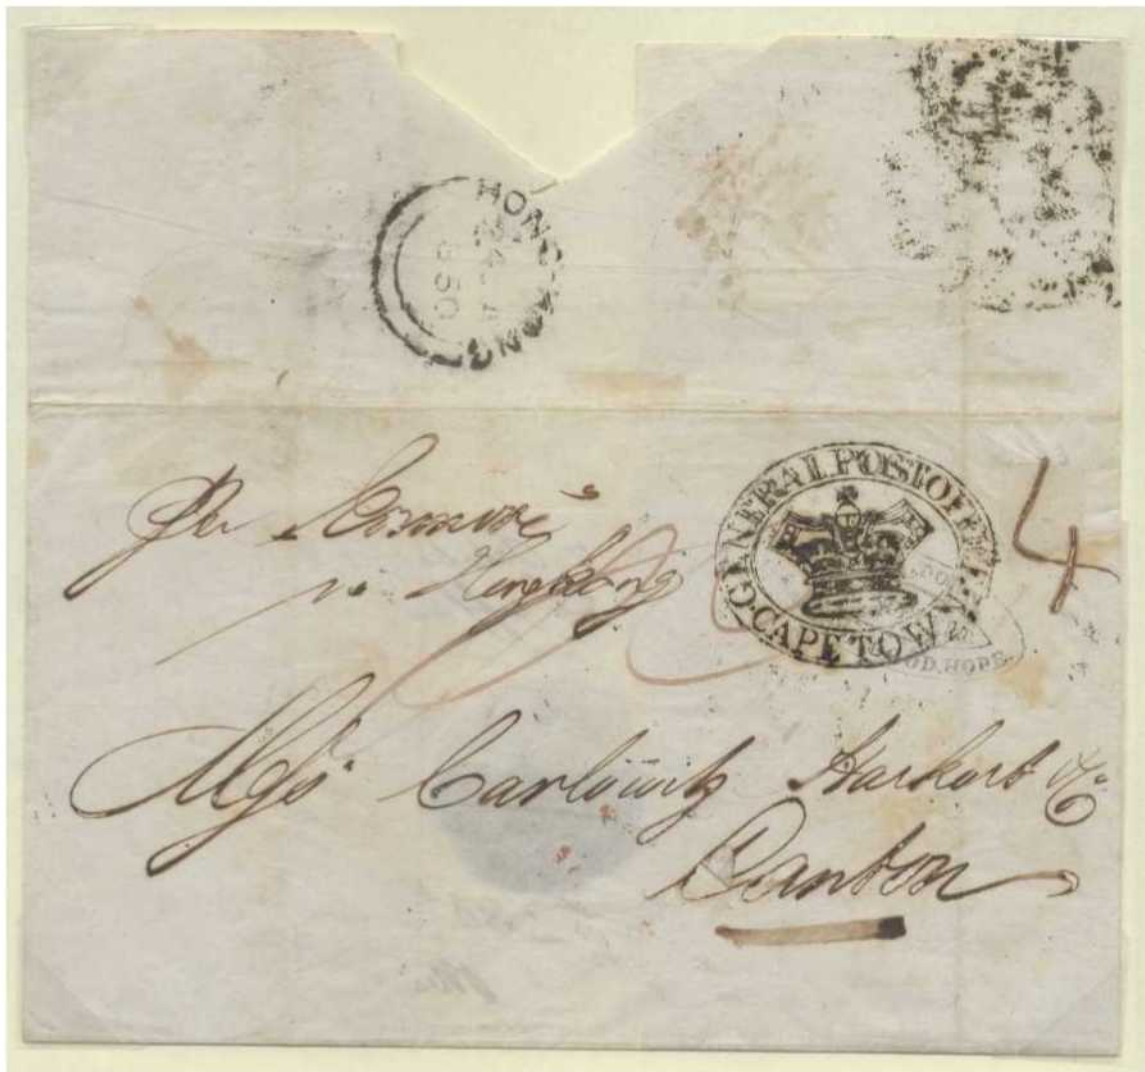 HONG KONG
24
1850
Per
via Hong Kong
GENERAL POST OFFICE
CAPE TOWN
4
OD. HOPE.
Carlowitz Harkort & Co
Canton